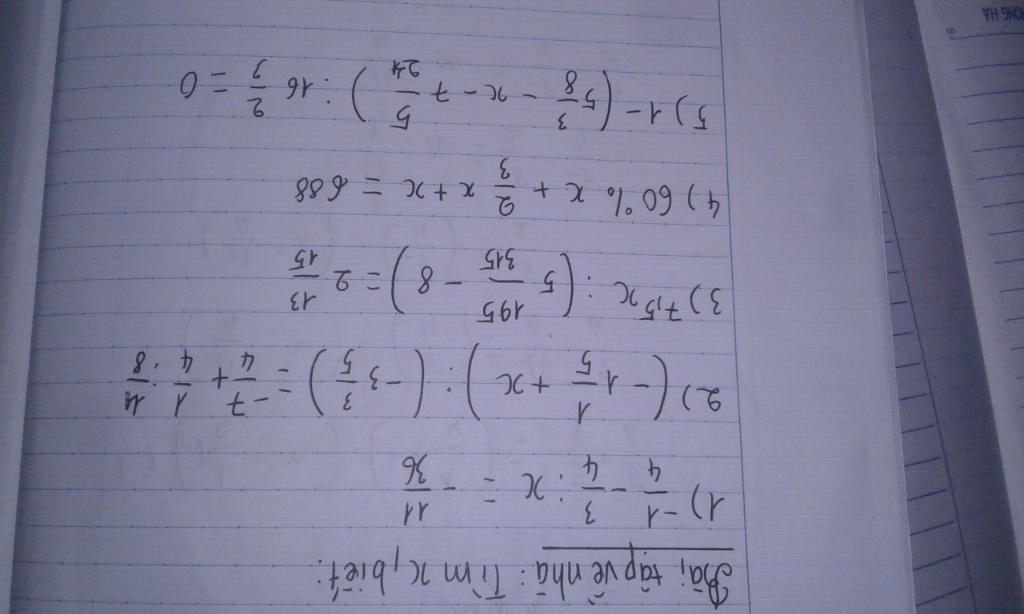 Bài tập về nhà: Tìm x, biết:
1) -1/4 - 3/4 : x = - 11/36
2) (-1 1/5 + x) : (-3 3/5) = -7/4 + 1/4 : 11/8
3) 7,5x : (5 195/315 - 8) = 2 13/15
4) 60% x + 2/3 x + x = 688
5) 1 - (5 3/8 - x - 7 5/24) : 16 2/3 = 0
HONG HA